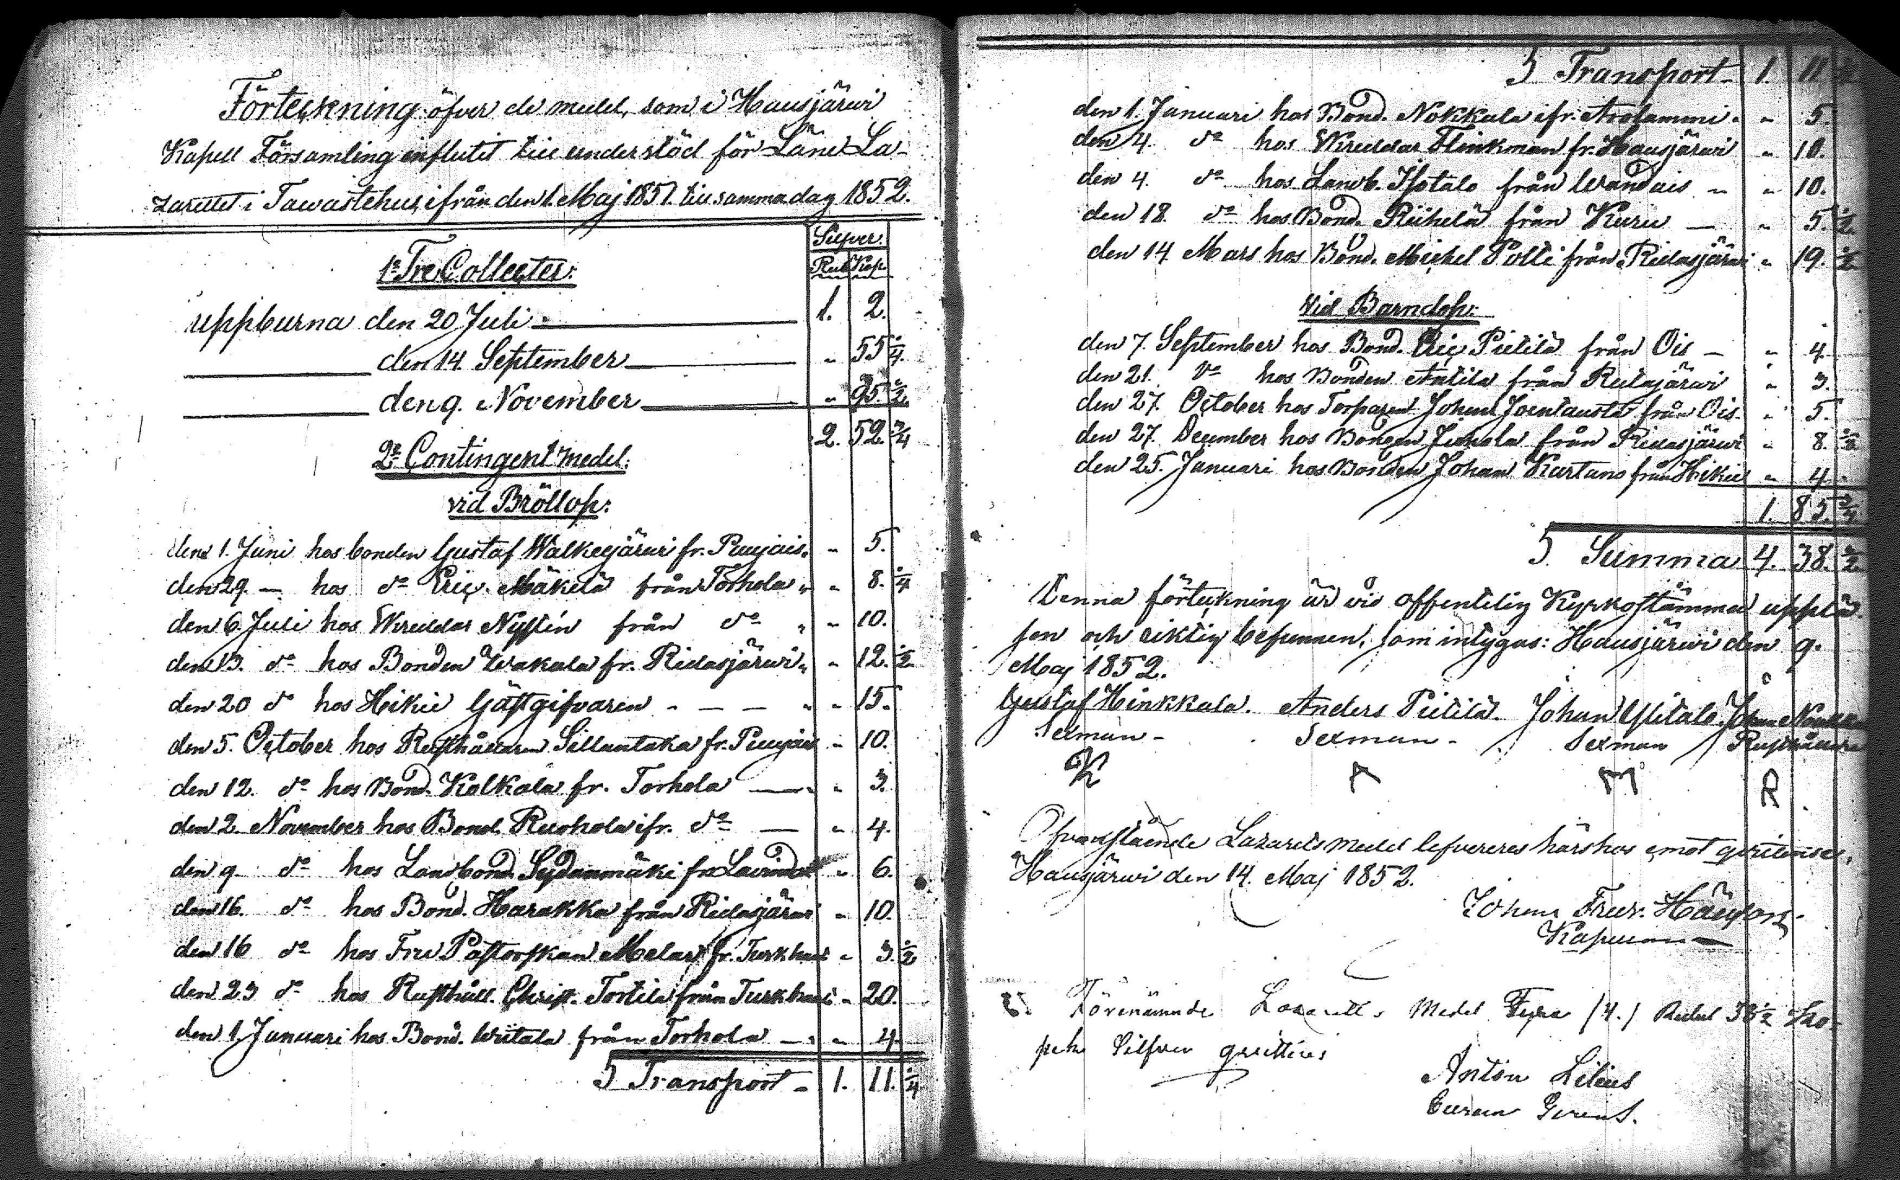 Förteckning öfver de medel, som i Hausjärwi
Kapell Församling influtit till understöd för Läne La-
zarettet i Tawastehus, ifrån den 1 Maj 1851 till samma dag 1852.
Silfver.
Rub. Kop.
1o Tre Collecter:
uppburna den 20 Juli 1. 2.
den 14 September " 55 1/4
den 9. November " 95 1/2
2. 52 3/4
2o Contingent medel.
vid Bröllop:
den 1. Juni hos bonden Gustaf Walkejärwi fr. Puujais " 5.
den 29. — hos do Eric Mäkelä från Torhola " 8. 1/4
den 6. Juli hos Wreddar Nystén från do " 10.
den 13. do hos Bonden Wakala fr. Ridasjärwi " 12. 1/2
den 20 do hos Hikiä Gästgifvaren " 15.
den 5. October hos Rusthållaren Sillantaka fr. Puujais " 10.
den 12. do hos Bond. Kolkala fr. Torhola " 3.
den 2. November hos Bond. Ruohola ifr. do " 4.
den 9 do hos Landbond. Sydanmäki fr. " 6.
den 16. do hos Bond. Harakka från Ridasjärwi " 10.
den 16 do hos Fru Pastorskan Melart fr. Turkhaut " 3 1/2
den 23 do hos Rusthåll. Christ. Tortila från Turkhaut " 20.
den 1. Januari hos Bond. Writala från Torhola " 4.
Transport 1. 11. 1/4
Transport 1. 11
den 1. Januari hos Bond. Nokkala ifr. Arolammi " 5.
den 4. do hos Wreddar Flinkman fr. Hausjärwi " 10.
den 4. do hos Landb. Isotalo från Wandais " 10.
den 18. do hos Bond. Riihelä från Kuru " 5. 1/2
den 14 Mars hos Bond. Michel Polli från Ridasjärwi " 19. 1/2
vid Barndop:
den 7. September hos Bond. Eric Pietilä från Ois " 4
den 21. do hos Bonden Antila från Ridasjärwi " 3.
den 27. October hos Torparen Johan Joentausta från Ois. " 5.
den 27. December hos Bonden Juhola från Ridasjärwi " 8. 1/2
den 25. Januari hos Bonden Johan Kurtans från Hikiä " 4
1. 85. 3/4
Summa 4. 38. 1/2
Denna förteckning är vid offentlig Kyrkostämma uppläsen
och riktig befunnen, som intygas: Hausjärwi den 9.
Maj 1852.
Gustaf Hinkkala. Anders Pietilä. Johan Ylitalo. Johan
Sexman Sexman Sexman Rusthållare
K A M R
Ofvanstående Lazaretsmedel lefvereres härhos emot quittense.
Hausjärwi den 14. Maj 1852.
Johan Fredr.
Kapellan
Förenämnde Lazaretts Medel Fyra (4.) Rubel 38 1/2 Ko-
pek Silfver quitteras
Anton Lilius